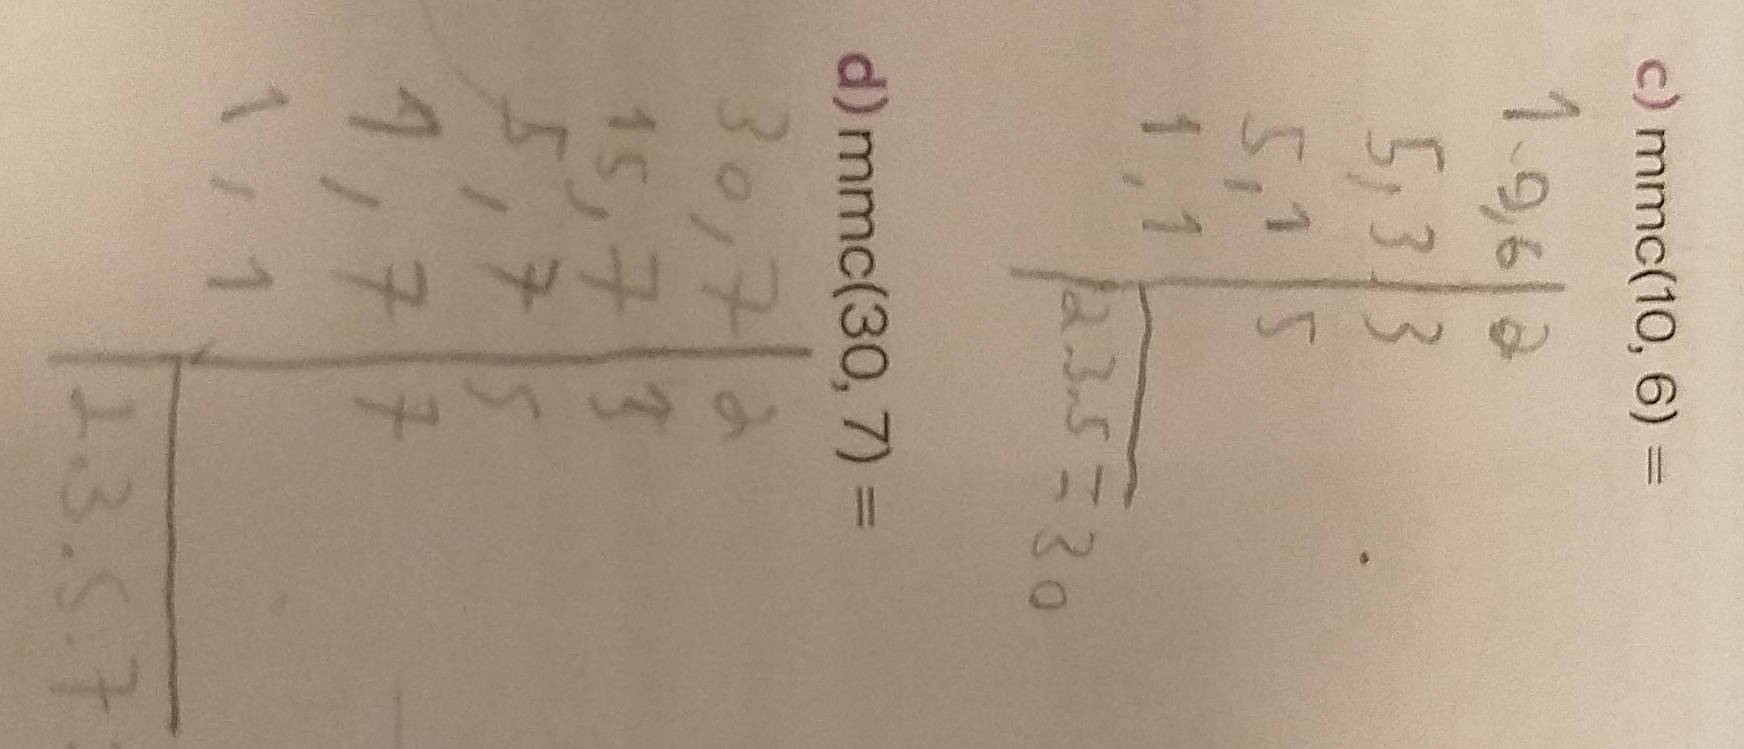 c) mmc(10, 6) =
10,6 2
5,3 3
5,1 5
1,1
2.3.5=30
d) mmc(30, 7) =
30,7 2
15,7 3
5,7 5
1,7 7
1,1
2.3.5.7